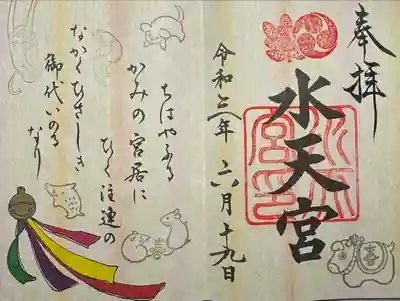 奉拝
水天宮
水天宮印
令和三年 六月十九日
ちはやふる
かみの宮居に
ひく注連の
なかくひさしき
御代いのる
なり